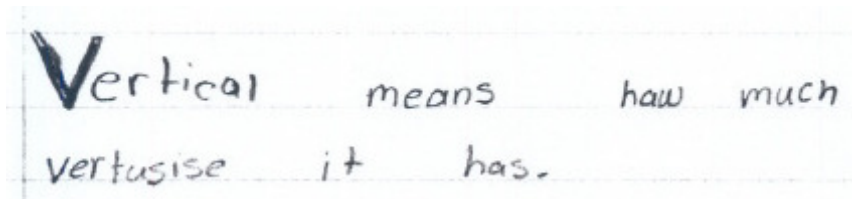 Vertical means haw much
vertusise it has.